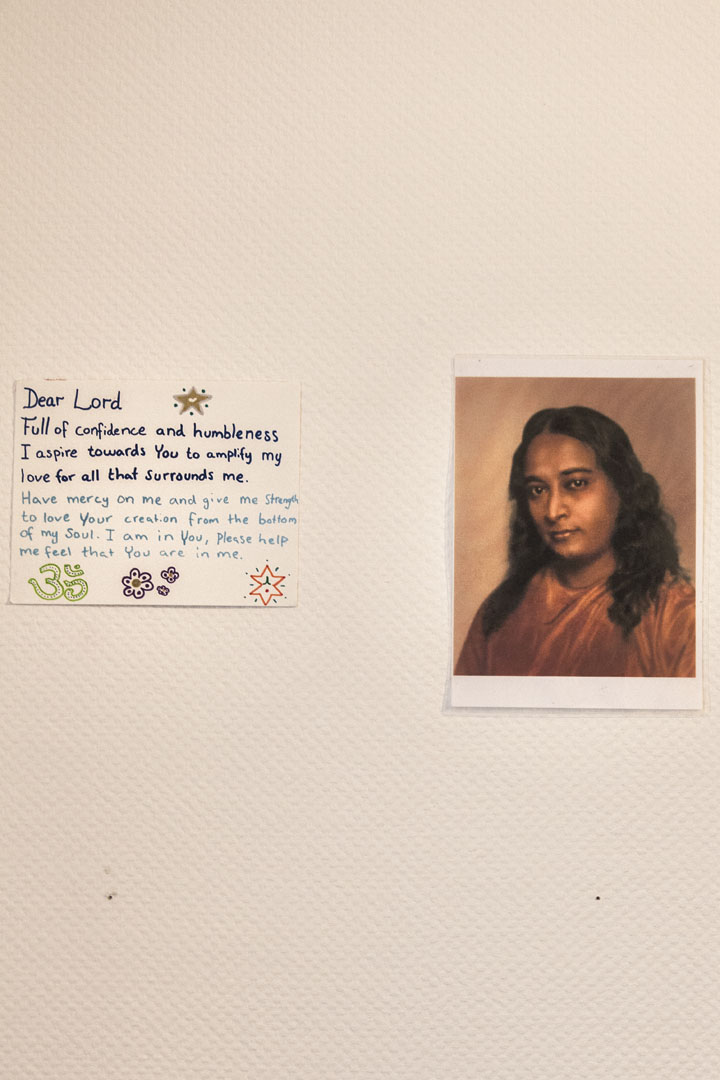 Dear Lord
Full of confidence and humbleness
I aspire towards You to amplify my
love for all that surrounds me.
Have mercy on me and give me strength
to love Your creation from the bottom
of my Soul. I am in You, Please help
me feel that You are in me.
ॐ